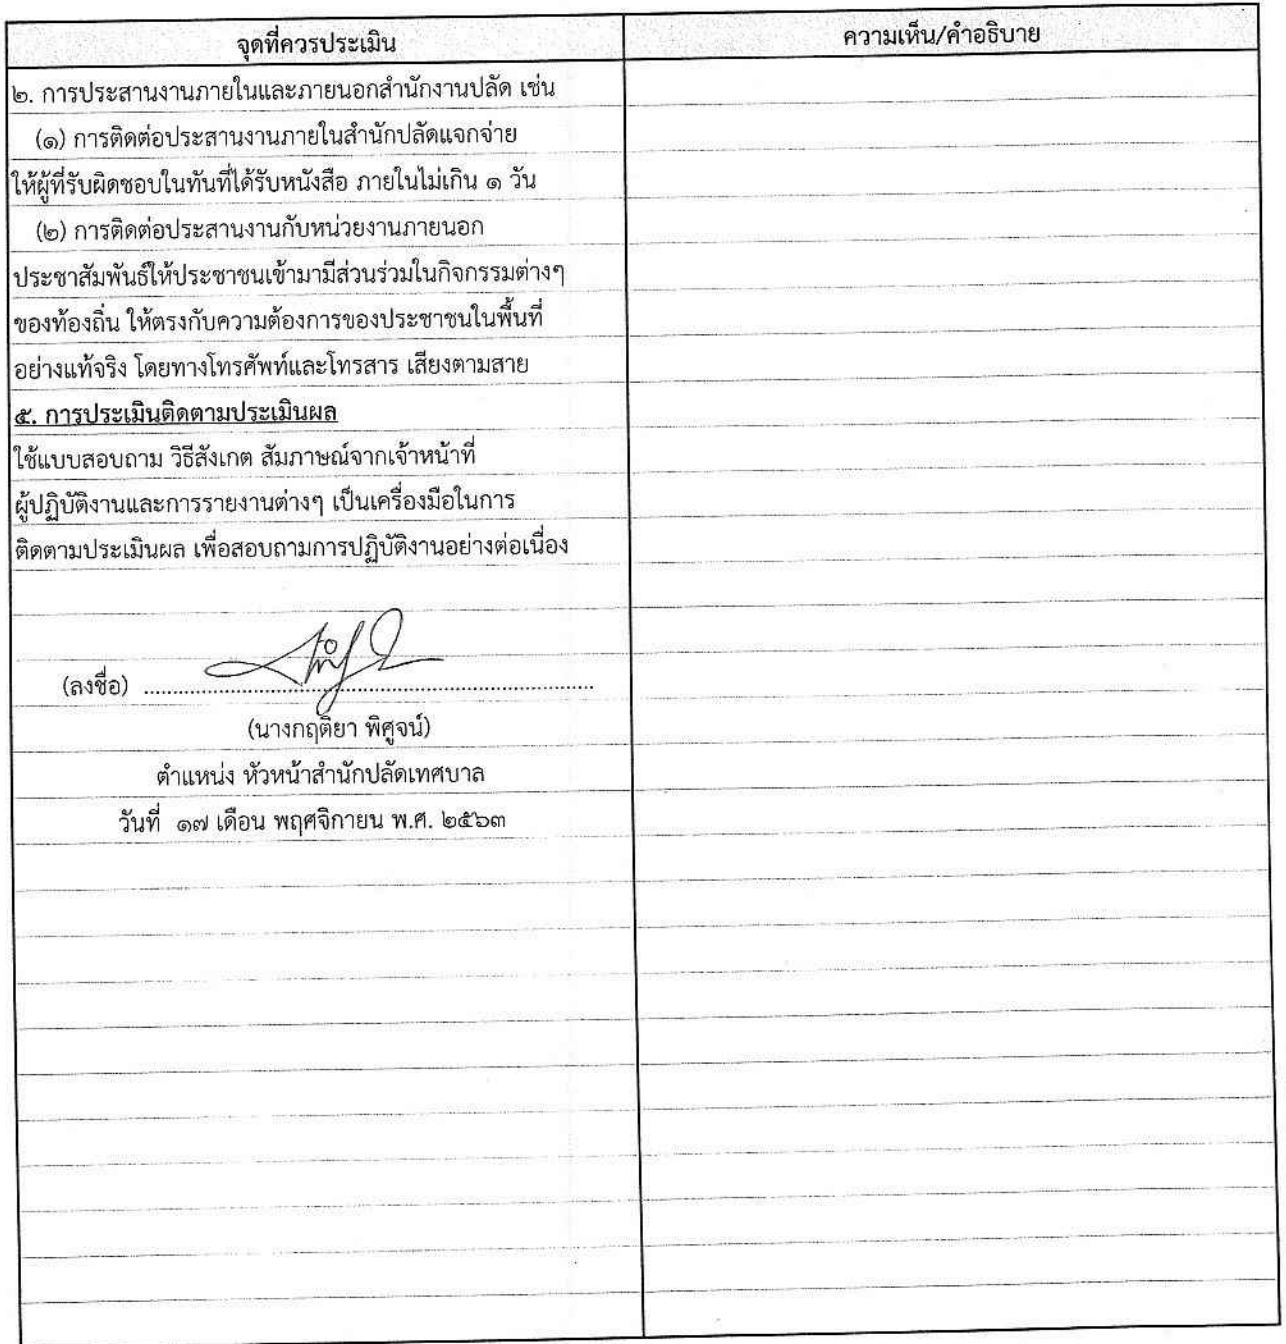 จุดที่ควรประเมิน
ความเห็น/คำอธิบาย
๒. การประสานงานภายในและภายนอกสำนักงานปลัด เช่น
(๑) การติดต่อประสานงานภายในสำนักปลัดแจกจ่าย
ให้ผู้ที่รับผิดชอบในทันทีได้รับหนังสือ ภายในไม่เกิน ๑ วัน
(๒) การติดต่อประสานงานกับหน่วยงานภายนอก
ประชาสัมพันธ์ให้ประชาชนเข้ามามีส่วนร่วมในกิจกรรมต่างๆ
ของท้องถิ่น ให้ตรงกับความต้องการของประชาชนในพื้นที่
อย่างแท้จริง โดยทางโทรศัพท์และโทรสาร เสียงตามสาย
๕. การประเมินติดตามประเมินผล
ใช้แบบสอบถาม วิธีสังเกต สัมภาษณ์จากเจ้าหน้าที่
ผู้ปฏิบัติงานและการรายงานต่างๆ เป็นเครื่องมือในการ
ติดตามประเมินผล เพื่อสอบถามการปฏิบัติงานอย่างต่อเนื่อง
(ลงชื่อ) ................................................................
(นางกฤติยา พิศูจน์)
ตำแหน่ง หัวหน้าสำนักปลัดเทศบาล
วันที่ ๑๗ เดือน พฤศจิกายน พ.ศ. ๒๕๖๓